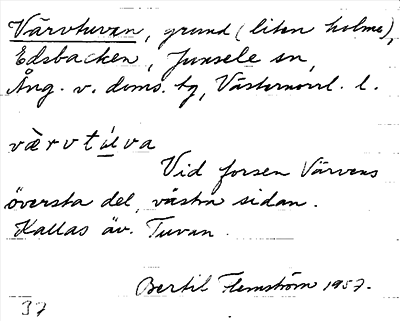 Värvtuvan, grund (liten holme),
Edsbacken, Junsele sn,
Ång. v. doms. tg, Västernorrl. l.
värvtúva
Vid forsen Värvens
översta del, västra sidan.
Kallas äv. Tuvan.
Bertil Flemström 1957.
37